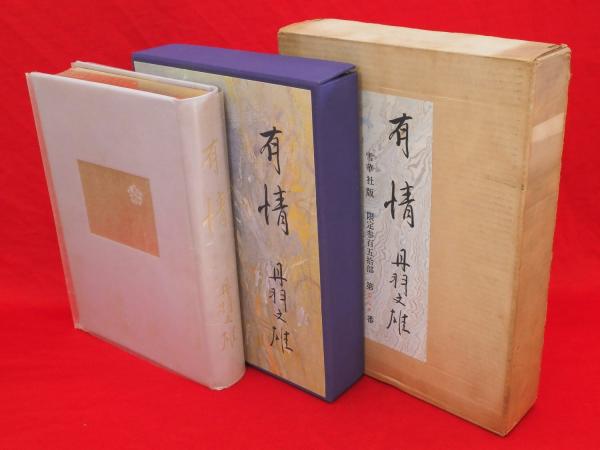 有情
丹羽文雄
有情
丹羽文雄
有情
丹羽文雄
雪華社版 限定参百五拾部 第
番